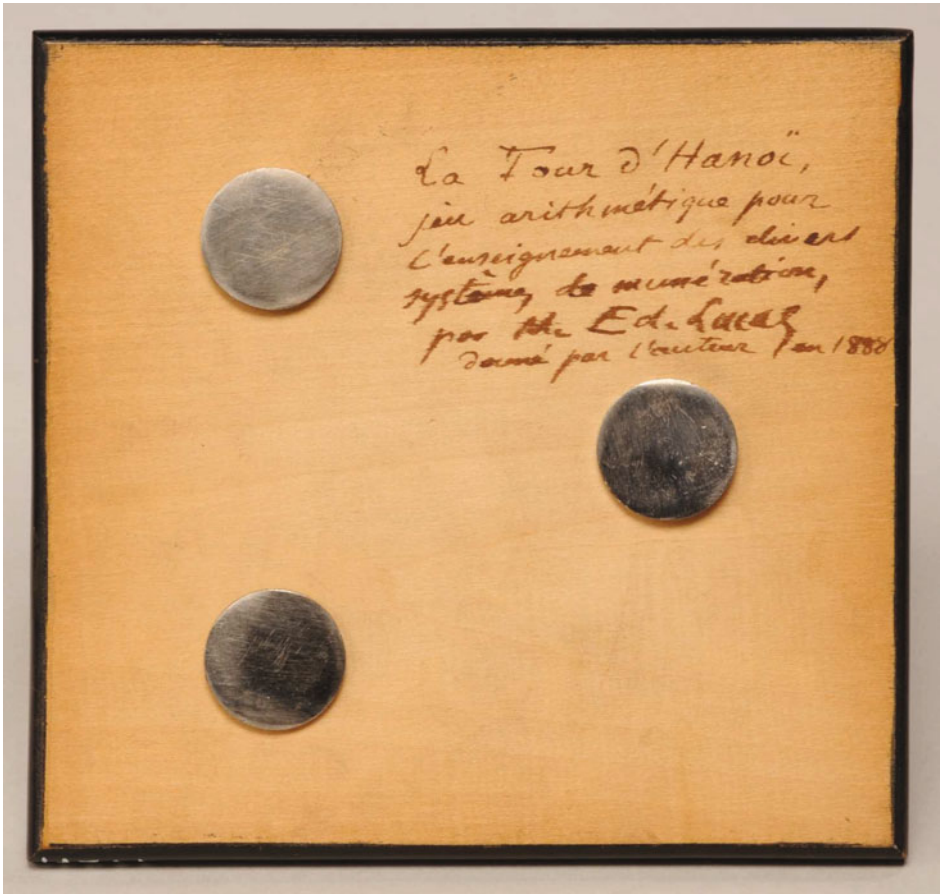 La Tour d'Hanoï,
jeu arithmétique pour
l'enseignement des divers
systèmes de numération,
par Mr Ed. Lucas
donné par l'auteur en 1888